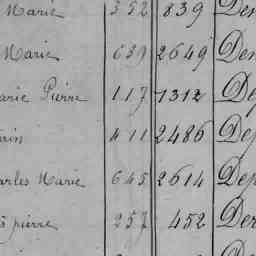 Marie 352 839 Den
Marie 639 2649 Den
arie Pierre 117 1312 Dep
rin 411 2486 Dep
arles Marie 645 2614 Dep
s pierre 257 452 Der